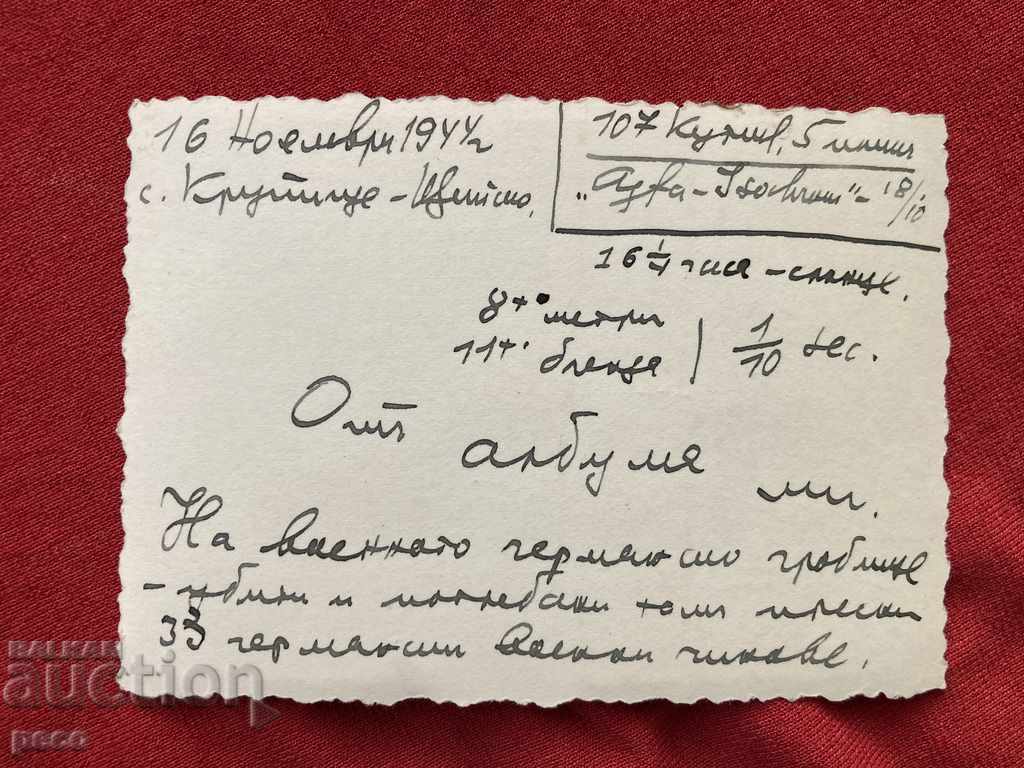 16 Ноември 1944
с. Крупище - Щипско,
107 Кутия, 5
"Agfa-Isochrom" - 18/10
16 1/4 часа - слънце.
8 метри
11 бленда | 1/10 сек.
Отъ албума ми.
На военното германско гробище
- убити и погребани
33 германски военни чинове.
БАЛКАН
auction
peco